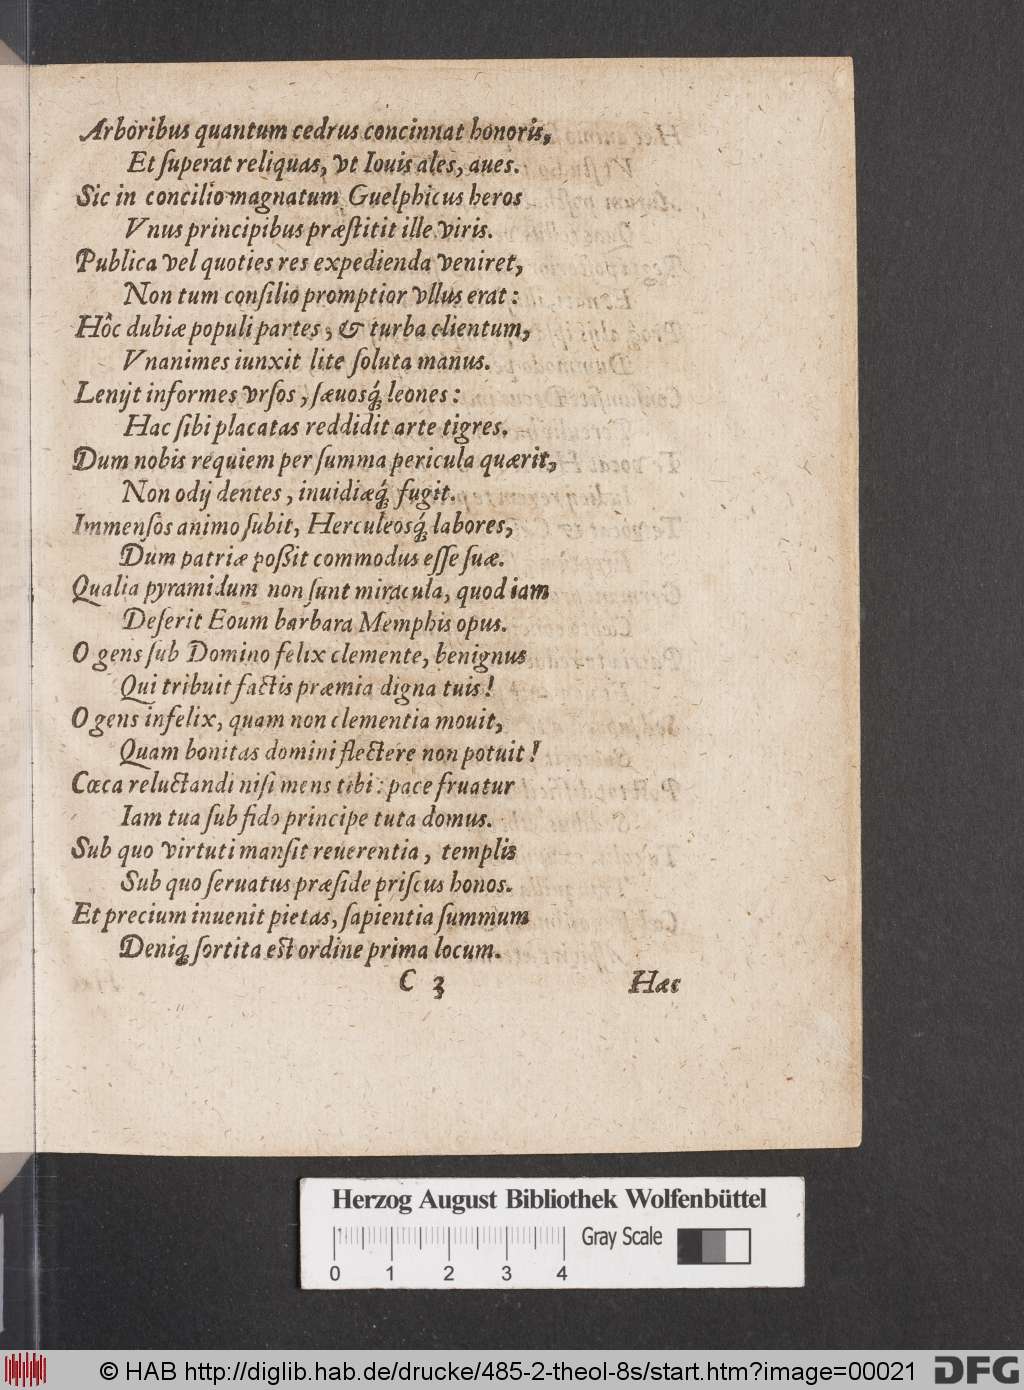 Arboribus quantum cedrus concinnat honoris,
Et ſuperat reliquas, vt Iouis ales, aues.
Sic in concilio magnatum Guelphicus heros
Vnus principibus præſtitit ille viris.
Publica vel quoties res expedienda veniret,
Non tum conſilio promptior vllus erat:
Hôc dubiæ populi partes, & turba clientum,
Vnanimes iunxit lite ſoluta manus.
Lenijt informes vrſos, ſæuosq́; leones:
Hac ſibi placatas reddidit arte tigres.
Dum nobis requiem per ſumma pericula quærit,
Non odij dentes, inuidiæq́; fugit.
Immenſos animo ſubit, Herculeosq́; labores,
Dum patriæ poßit commodus eſſe ſuæ.
Qualia pyramidum non ſunt miracula, quod iam
Deſerit Eoum barbara Memphis opus.
O gens ſub Domino felix clemente, benignus
Qui tribuit factis præmia digna tuis!
O gens infelix, quam non clementia mouit,
Quam bonitas domini flectere non potuit!
Cæca reluctandi niſi mens tibi: pace fruatur
Iam tua ſub fido principe tuta domus.
Sub quo virtuti manſit reuerentia, templis
Sub quo ſeruatus præſide priſcus honos.
Et precium inuenit pietas, ſapientia ſummum
Deniq; ſortita eſt ordine prima locum.
C 3 Hæc
Herzog August Bibliothek Wolfenbüttel
Gray Scale
0 1 2 3 4
© HAB http://diglib.hab.de/drucke/485-2-theol-8s/start.htm?image=00021
DFG